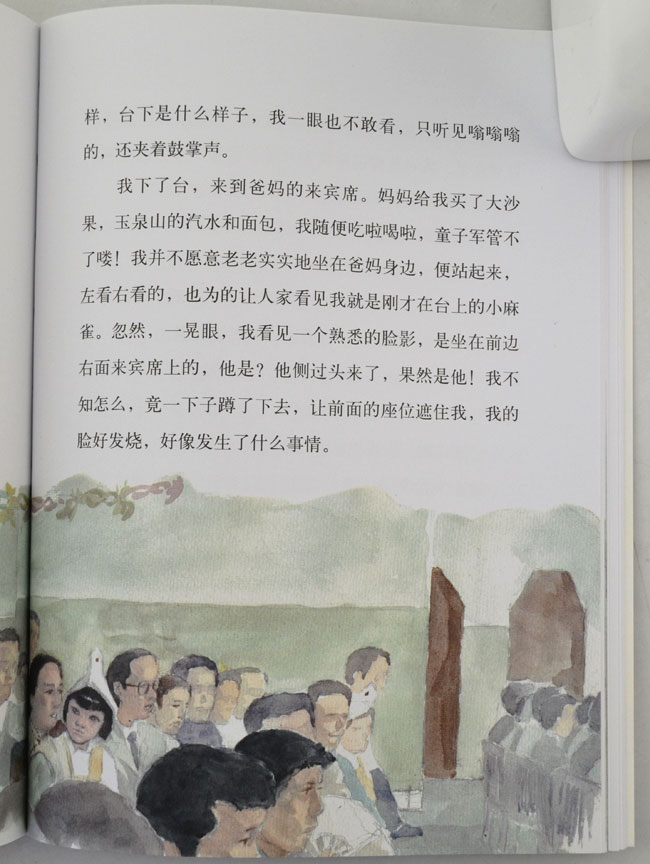 样，台下是什么样子，我一眼也不敢看，只听见嗡嗡嗡
的，还夹着鼓掌声。
我下了台，来到爸妈的来宾席。妈妈给我买了大沙
果，玉泉山的汽水和面包，我随便吃啦喝啦，童子军管不
了喽！我并不愿意老老实实地坐在爸妈身边，便站起来，
左看右看的，也为的让人家看见我就是刚才在台上的小麻
雀。忽然，一晃眼，我看见一个熟悉的脸影，是坐在前边
右面来宾席上的，他是？他侧过头来了，果然是他！我不
知怎么，竟一下子蹲了下去，让前面的座位遮住我，我的
脸好发烧，好像发生了什么事情。